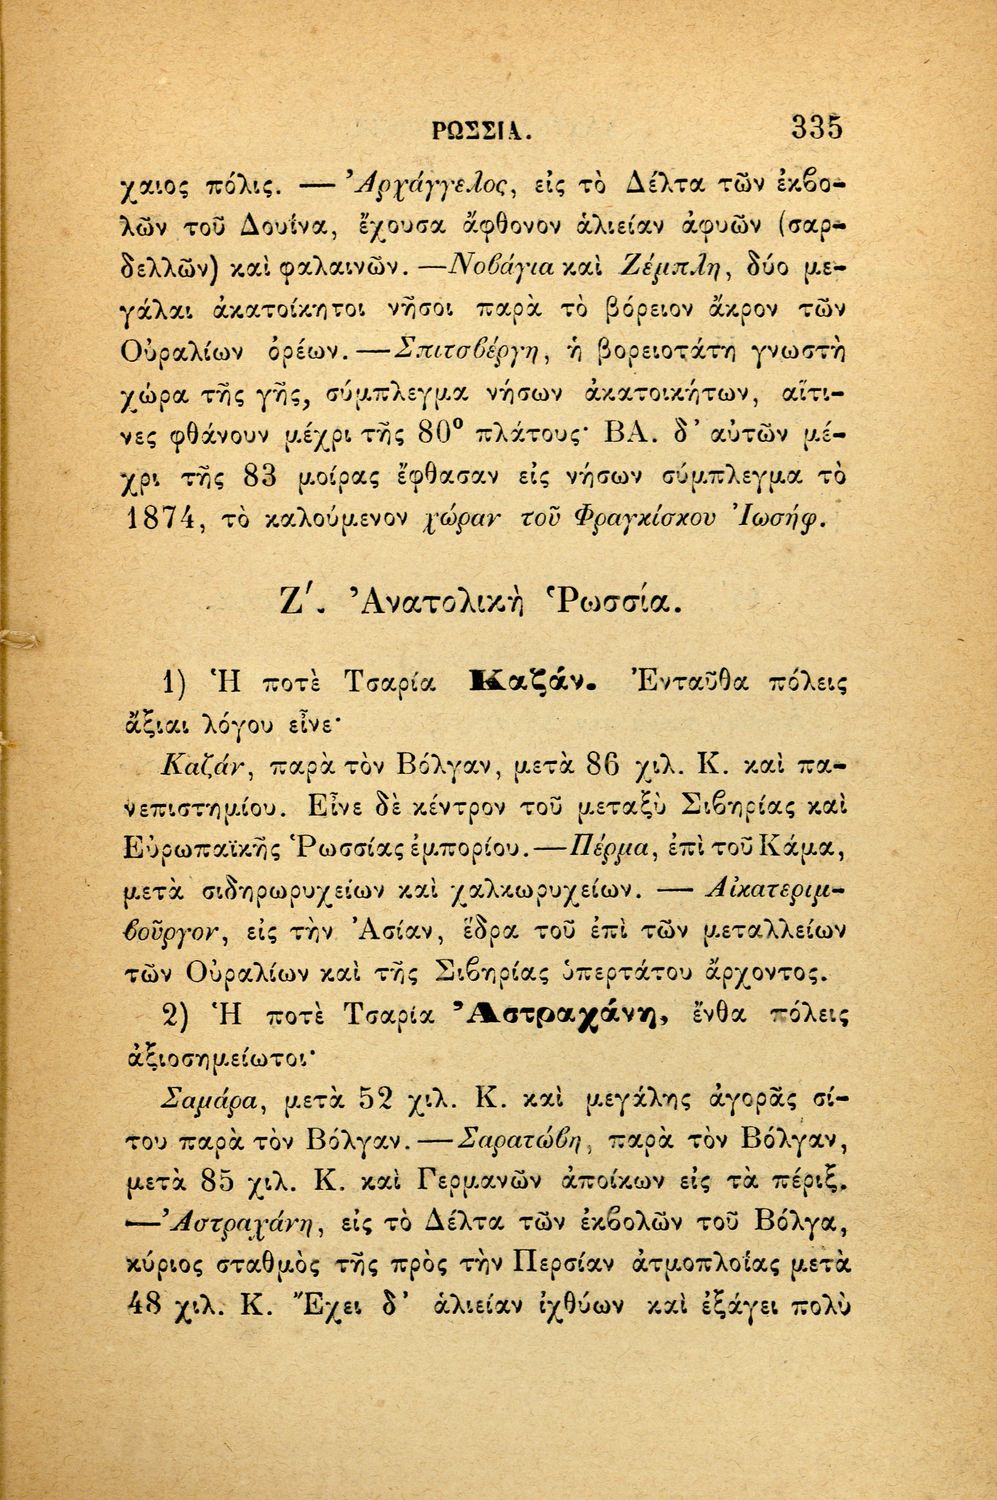 ΡΩΣΣΙΑ. 335
χαιος πόλις. — Ἀρχάγγελος, εἰς τὸ Δέλτα τῶν ἐκβο-
λῶν τοῦ Δουΐνα, ἔχουσα ἄφθονον ἁλιείαν ἀφυῶν (σαρ-
δελλῶν) καὶ φαλαινῶν. —Νοβάγια καὶ Ζέμπλη, δύο με-
γάλαι ἀκατοίκητοι νῆσοι παρὰ τὸ βόρειον ἄκρον τῶν
Οὐραλίων ὀρέων.—Σπιτσβέργη, ἡ βορειοτάτη γνωστὴ
χώρα τῆς γῆς, σύμπλεγμα νήσων ἀκατοικήτων, αἵτι-
νες φθάνουν μέχρι τῆς 80° πλάτους· ΒΑ. δ' αὐτῶν μέ-
χρι τῆς 83 μοίρας ἔφθασαν εἰς νήσων σύμπλεγμα τὸ
1874, τὸ καλούμενον χώραν τοῦ Φραγκίσκου Ἰωσήφ.
Ζ'. Ἀνατολικὴ Ῥωσσία.
1) Ἡ ποτὲ Τσαρία Καζάν. Ἐνταῦθα πόλεις
ἄξιαι λόγου εἶνε·
Καζάν, παρὰ τὸν Βόλγαν, μετὰ 86 χιλ. Κ. καὶ πα-
νεπιστημίου. Εἶνε δὲ κέντρον τοῦ μεταξὺ Σιβηρίας καὶ
Εὐρωπαϊκῆς Ῥωσσίας ἐμπορίου.—Πέρμα, ἐπὶ τοῦ Κάμα,
μετὰ σιδηρωρυχείων καὶ χαλκωρυχείων. — Αἰκατεριμ-
βοῦργον, εἰς τὴν Ἀσίαν, ἕδρα τοῦ ἐπὶ τῶν μεταλλείων
τῶν Οὐραλίων καὶ τῆς Σιβηρίας ὑπερτάτου ἄρχοντος.
2) Ἡ ποτὲ Τσαρία Ἀστραχάνη, ἔνθα πόλεις
ἀξιοσημείωτοι·
Σαμάρα, μετὰ 52 χιλ. Κ. καὶ μεγάλης ἀγορᾶς σί-
του παρὰ τὸν Βόλγαν.—Σαρατώβη, παρὰ τὸν Βόλγαν,
μετὰ 85 χιλ. Κ. καὶ Γερμανῶν ἀποίκων εἰς τὰ πέριξ.
—Ἀστραχάνη, εἰς τὸ Δέλτα τῶν ἐκβολῶν τοῦ Βόλγα,
κύριος σταθμὸς τῆς πρὸς τὴν Περσίαν ἀτμοπλοΐας μετὰ
48 χιλ. Κ. Ἔχει δ' ἁλιείαν ἰχθύων καὶ ἐξάγει πολὺ